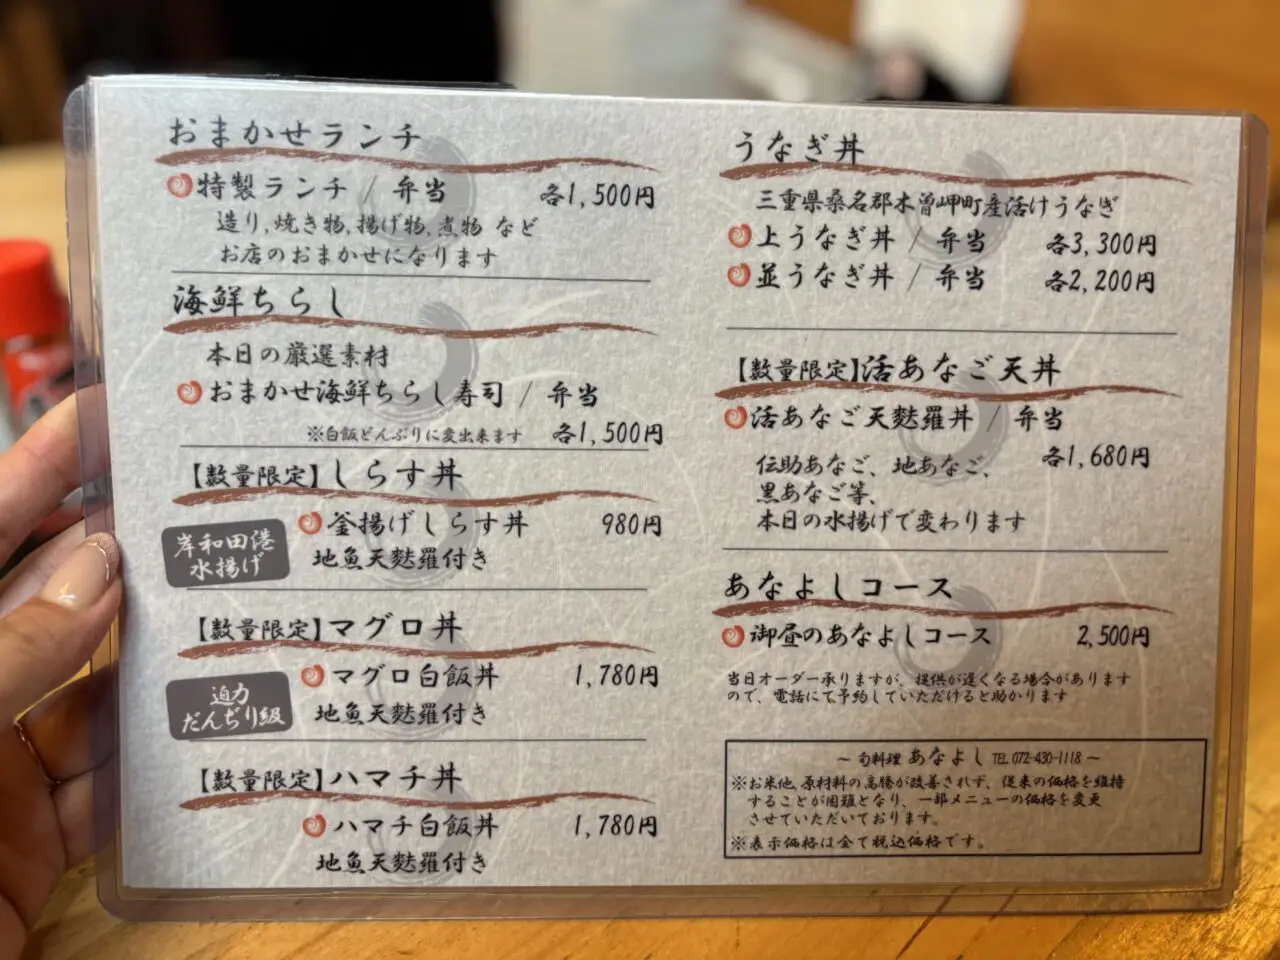 おまかせランチ
特製ランチ / 弁当 各1,500円
造り,焼き物,揚げ物,煮物 など
お店のおまかせになります
海鮮ちらし
本日の厳選素材
おまかせ海鮮ちらし寿司 / 弁当
※白飯どんぶりに変出来ます 各1,500円
【数量限定】しらす丼
岸和田港
水揚げ
釜揚げしらす丼 980円
地魚天麩羅付き
【数量限定】マグロ丼
迫力
だんぢり級
マグロ白飯丼 1,780円
地魚天麩羅付き
【数量限定】ハマチ丼
ハマチ白飯丼 1,780円
地魚天麩羅付き
うなぎ丼
三重県桑名郡木曽岬町産活けうなぎ
上うなぎ丼 / 弁当 各3,300円
並うなぎ丼 / 弁当 各2,200円
【数量限定】活あなご天丼
活あなご天麩羅丼 / 弁当
各1,680円
伝助あなご、地あなご、
黒あなご等、
本日の水揚げで変わります
あなよしコース
御昼のあなよしコース 2,500円
当日オーダー承りますが、提供が遅くなる場合があります
ので、電話にて予約していただけると助かります
～ 旬料理 あなよし TEL 072-430-1118 ～
※お米他,原材料の高騰が改善されず、従来の価格を維持
することが困難となり、一部メニューの価格を変更
させていただいております。
※表示価格は全て税込価格です。